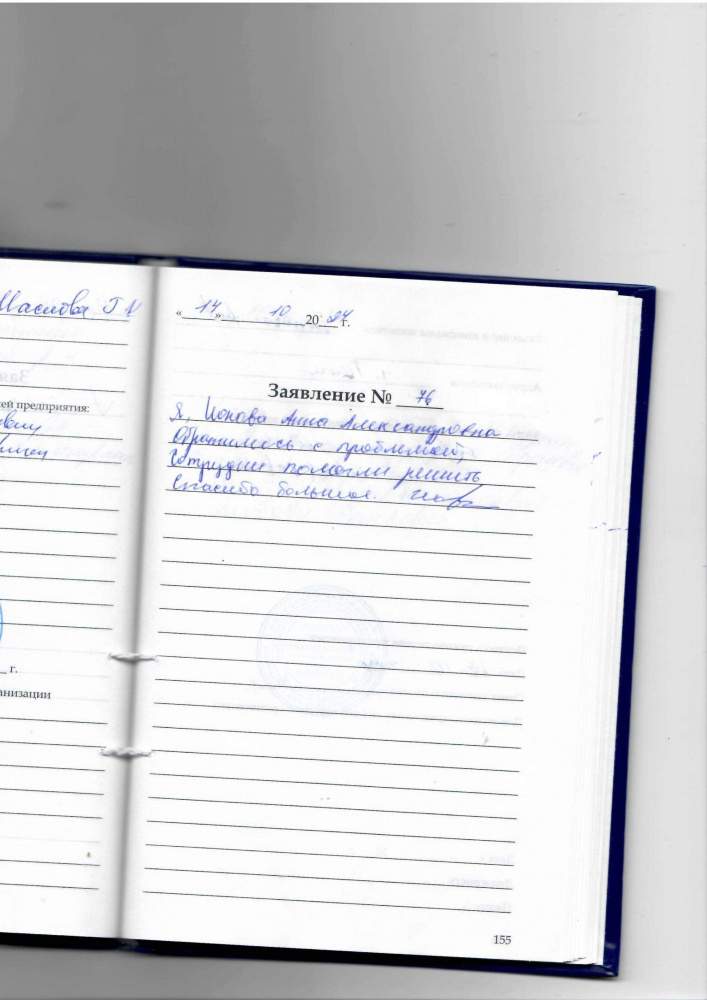 Маслова Г
ей предприятия:
г.
анизации
«14» 10 2024 г.
Заявление № 76
Я, Ионова Анна Александровна
Обратилась с проблемой,
Сотрудни помогли решить
Спасибо большое.
155